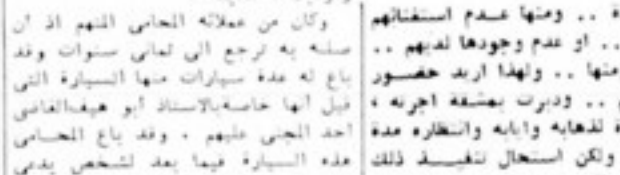 ة .. ومنها عدم استغنائهم
.. او عدم وجودها لديهم ..
منها .. ولهذا اريد حضور
م .. ودبرت بمشقة اجرته
ة لذهابه وايابه وانتظاره مدة
ولكن استحال تنفيذ ذلك
وكان من عملائه المحامى المتهم اذ ان
صلته به ترجع الى ثمانى سنوات وقد
باع له عدة سيارات منها السيارة التى
قيل أنها خاصة بالاستاذ أبو هيف القاضى
احد المجنى عليهم . وقد باع المحامى
هذه السيارة فيما بعد لشخص يدعى